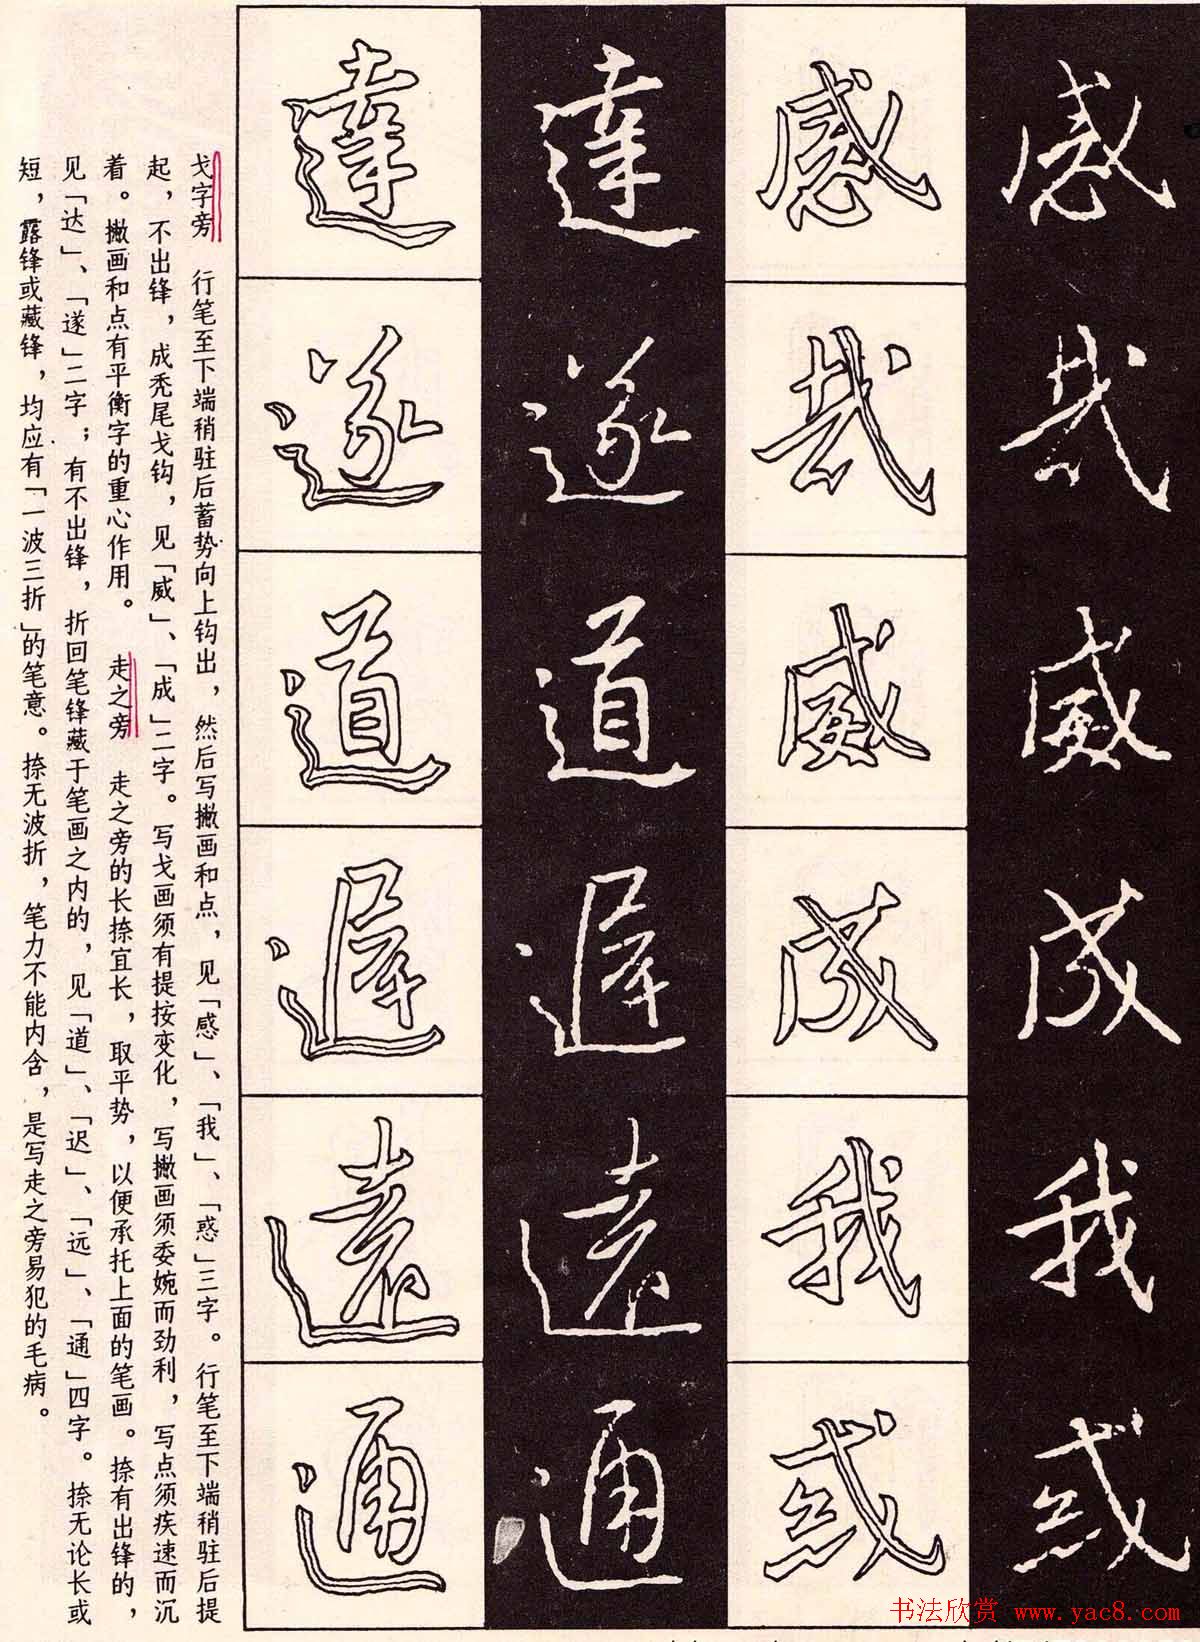 感哉威成我惑
感哉威成我惑
達遂道遲遠通
達遂道遲遠通
戈字旁　行笔至下端稍驻后蓄势向上钩出，然后写撇画和点，见「感」、「我」、「惑」三字。行笔至下端稍驻后提
起，不出锋，成秃尾戈钩，见「威」、「成」二字。写戈画须有提按变化，写撇画须委婉而劲利，写点须疾速而沉
着。撇画和点有平衡字的重心作用。　走之旁　走之旁的长捺宜长，取平势，以便承托上面的笔画。捺有出锋的，
见「达」、「遂」二字；有不出锋，折回笔锋藏于笔画之内的，见「道」、「迟」、「远」、「通」四字。捺无论长或
短，露锋或藏锋，均应有「一波三折」的笔意。捺无波折，笔力不能内含，是写走之旁易犯的毛病。
书法欣赏 www.yac8.com